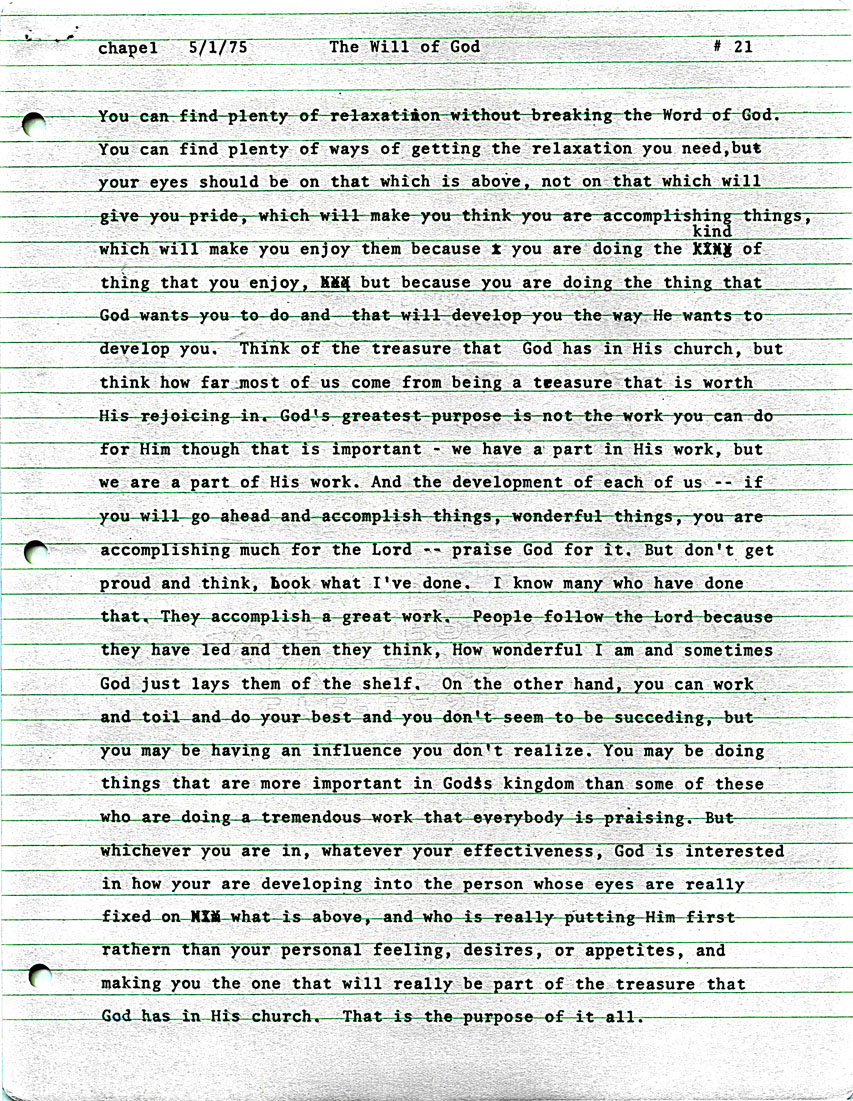 chapel 5/1/75 The Will of God # 21
You can find plenty of relaxatiion without breaking the Word of God.
You can find plenty of ways of getting the relaxation you need,but
your eyes should be on that which is above, not on that which will
give you pride, which will make you think you are accomplishing things,
kind
which will make you enjoy them because you are doing the of
thing that you enjoy, but because you are doing the thing that
God wants you to do and that will develop you the way He wants to
develop you. Think of the treasure that God has in His church, but
think how far most of us come from being a treasure that is worth
His rejoicing in. God's greatest purpose is not the work you can do
for Him though that is important - we have a part in His work, but
we are a part of His work. And the development of each of us -- if
you will go ahead and accomplish things, wonderful things, you are
accomplishing much for the Lord -- praise God for it. But don't get
proud and think, Look what I've done. I know many who have done
that. They accomplish a great work. People follow the Lord because
they have led and then they think, How wonderful I am and sometimes
God just lays them of the shelf. On the other hand, you can work
and toil and do your best and you don't seem to be succeding, but
you may be having an influence you don't realize. You may be doing
things that are more important in God's kingdom than some of these
who are doing a tremendous work that everybody is praising. But
whichever you are in, whatever your effectiveness, God is interested
in how your are developing into the person whose eyes are really
fixed on what is above, and who is really putting Him first
rathern than your personal feeling, desires, or appetites, and
making you the one that will really be part of the treasure that
God has in His church. That is the purpose of it all.